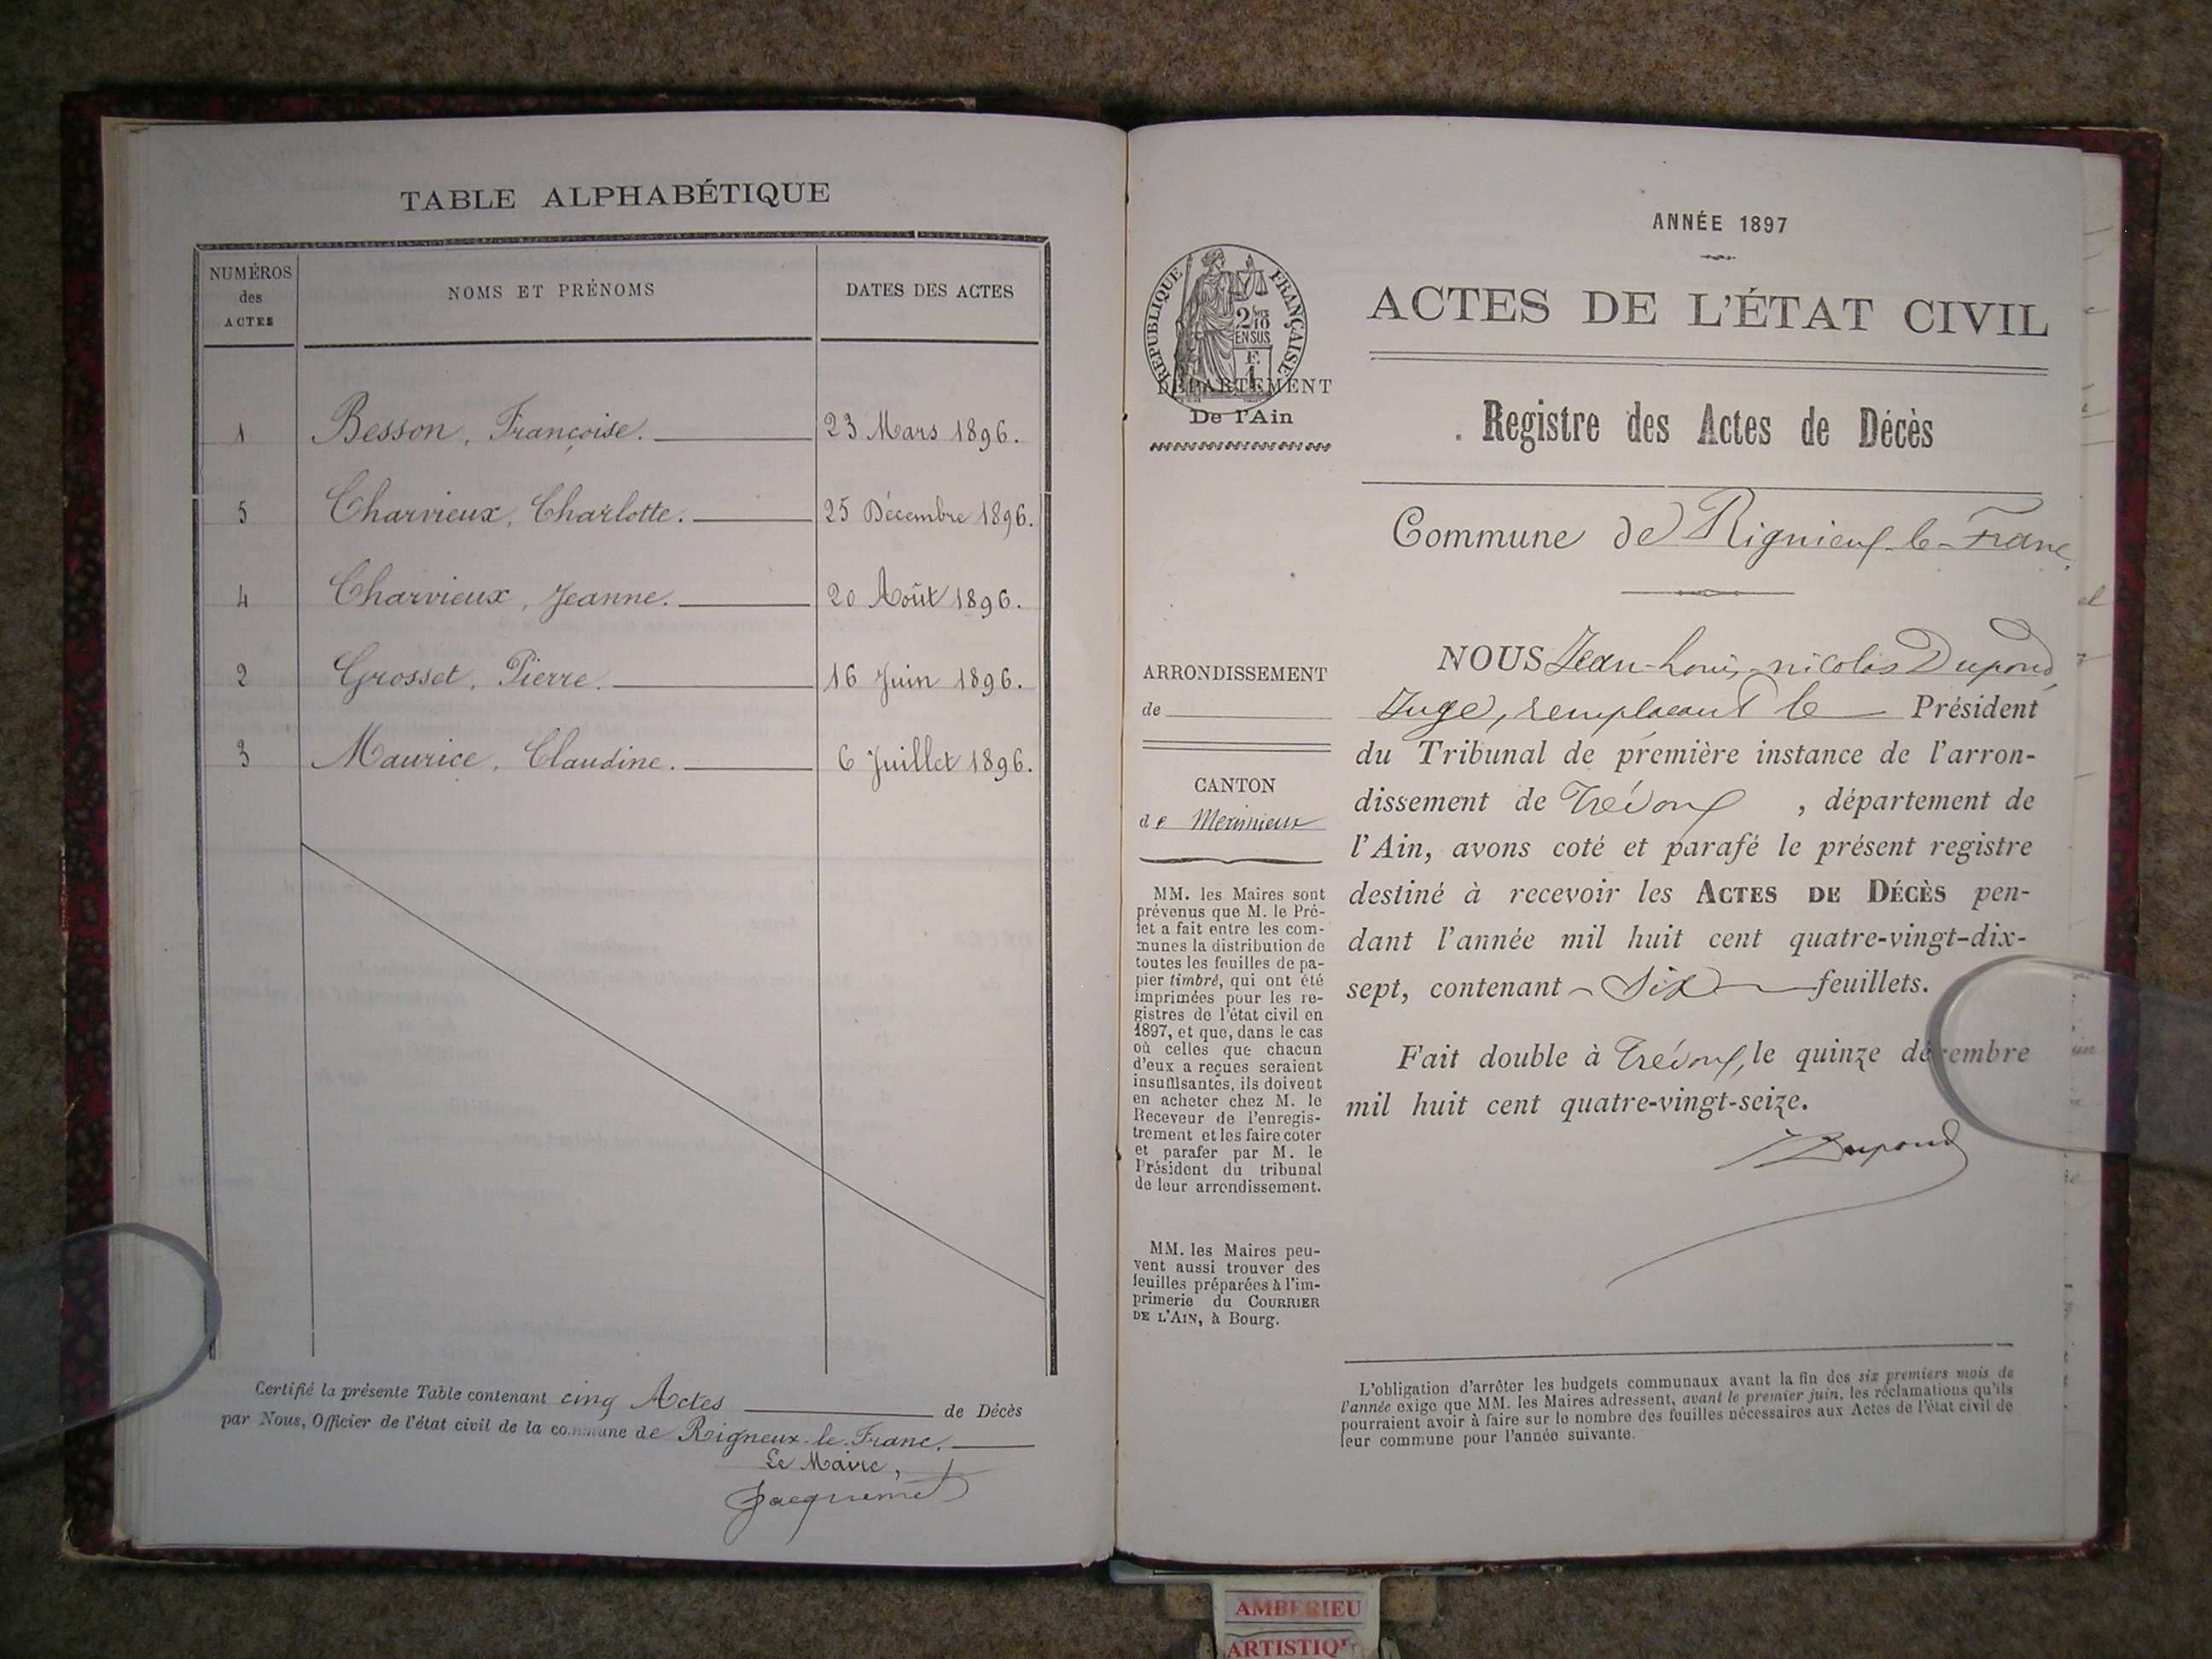 TABLE ALPHABÉTIQUE
NUMÉROS
des
ACTES
NOMS ET PRÉNOMS
DATES DES ACTES
1 Besson, Françoise. 23 Mars 1896.
5 Charvieux, Charlotte. 25 Décembre 1896.
4 Charvieux, Jeanne. 20 Août 1896.
2 Grosset, Pierre. 16 Juin 1896.
3 Maurice, Claudine. 6 Juillet 1896.
Certifié la présente Table contenant cinq Actes de Décès
par Nous, Officier de l'état civil de la commune de Rigneux-le-Franc.
Le Maire,
Jacquemet
ANNÉE 1897
RÉPUBLIQUE FRANÇAISE
2/10
EN SUS
DÉPARTEMENT
De l'Ain
ACTES DE L'ÉTAT CIVIL
Registre des Actes de Décès
Commune de Rignieux-le-Franc.
ARRONDISSEMENT
de
CANTON
de Meximieux
MM. les Maires sont
prévenus que M. le Pré-
fet a fait entre les com-
munes la distribution de
toutes les feuilles de pa-
pier timbré, qui ont été
imprimées pour les re-
gistres de l'état civil en
1897, et que, dans le cas
où celles que chacun
d'eux a reçues seraient
insuffisantes, ils doivent
en acheter chez M. le
Receveur de l'enregis-
trement et les faire coter
et parafer par M. le
Président du tribunal
de leur arrondissement.
MM. les Maires peu-
vent aussi trouver des
feuilles préparées à l'im-
primerie du COURRIER
DE L'AIN, à Bourg.
NOUS Jean-Louis-Nicolas Dupond,
Juge, remplaçant le Président
du Tribunal de première instance de l'arron-
dissement de Trévoux, département de
l'Ain, avons coté et parafé le présent registre
destiné à recevoir les ACTES DE DÉCÈS pen-
dant l'année mil huit cent quatre-vingt-dix-
sept, contenant six feuillets.
Fait double à Trévoux, le quinze décembre
mil huit cent quatre-vingt-seize.
Dupond
L'obligation d'arrêter les budgets communaux avant la fin des six premiers mois de
l'année exige que MM. les Maires adressent, avant le premier juin, les réclamations qu'ils
pourraient avoir à faire sur le nombre des feuilles nécessaires aux Actes de l'état civil de
leur commune pour l'année suivante.
AMBERIEU
ARTISTIQU